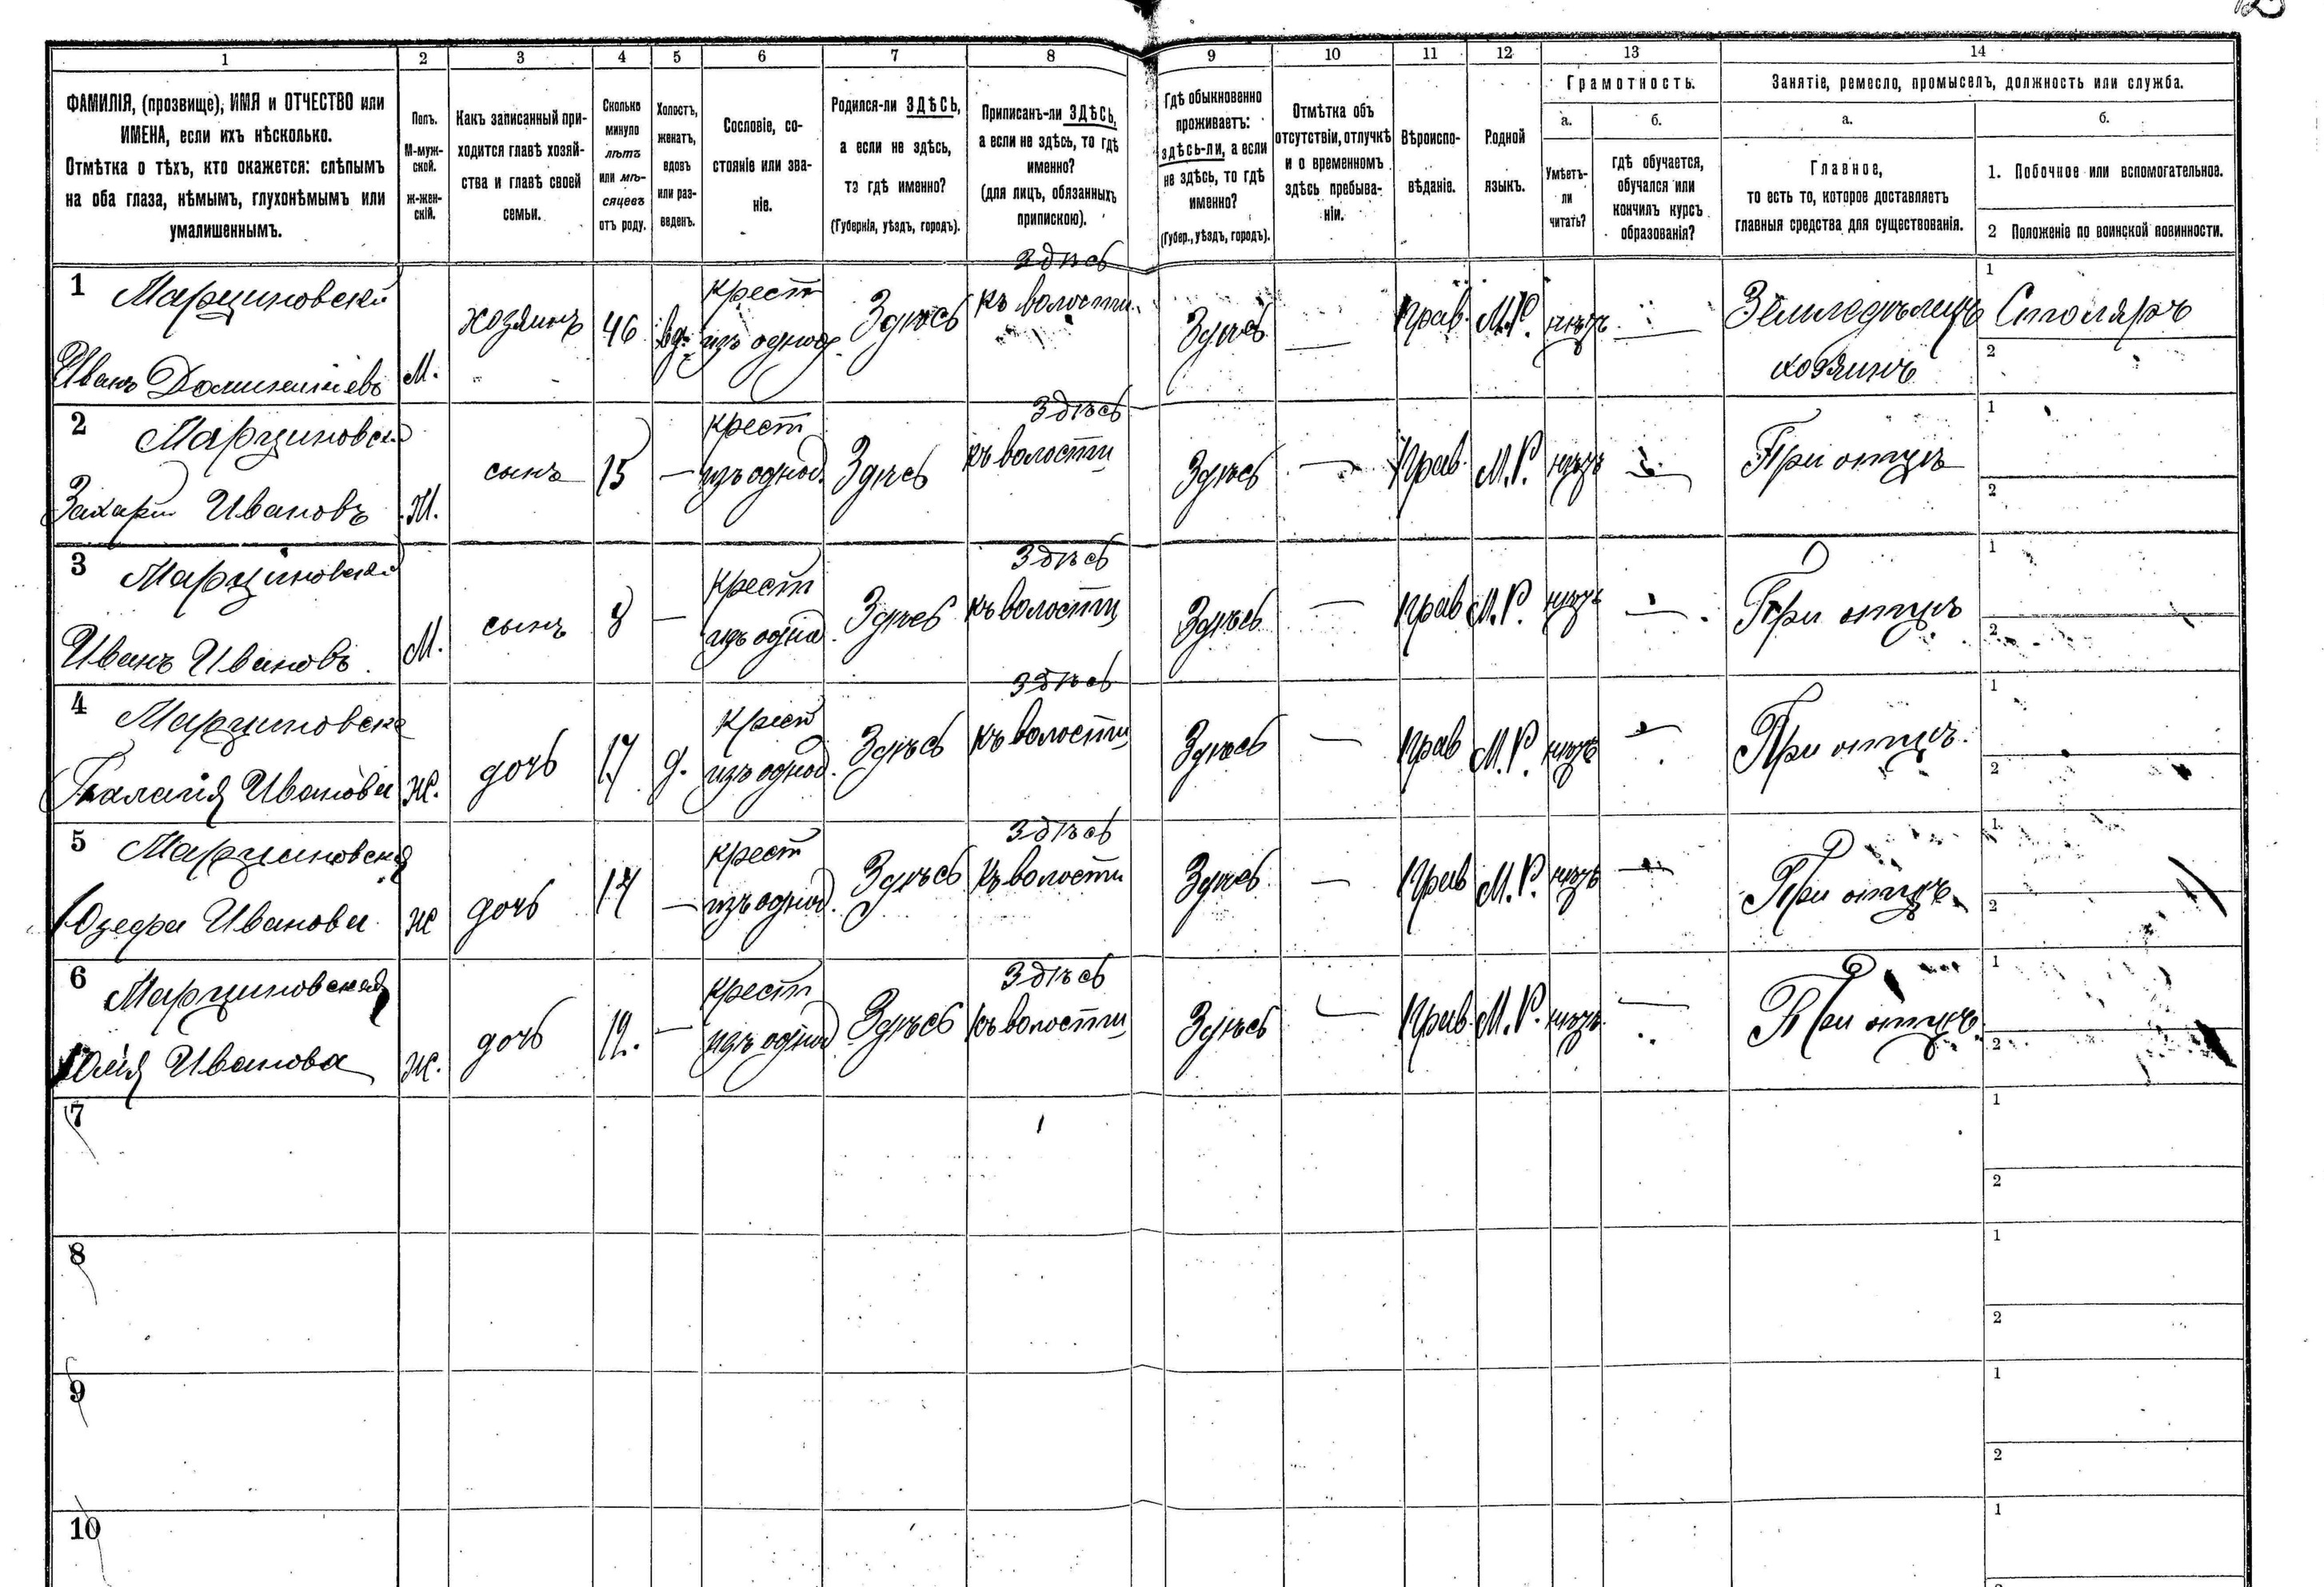 1 2 3 4 5 6 7 8 9 10 11 12 13 14
ФАМИЛІЯ, (прозвище), ИМЯ и ОТЧЕСТВО или
ИМЕНА, если ихъ нѣсколько.
Отмѣтка о тѣхъ, кто окажется: слѣпымъ
на оба глаза, нѣмымъ, глухонѣмымъ или
умалишеннымъ.
Полъ.
М-муж-
ской.
ж-жен-
скій.
Какъ записанный при-
ходится главѣ хозяй-
ства и главѣ своей
семьи.
Сколько
минуло
лѣтъ
или мѣ-
сяцевъ
отъ роду.
Холостъ,
женатъ,
вдовъ
или раз-
веденъ.
Сословіе, со-
стояніе или зва-
ніе.
Родился-ли ЗДѢСЬ,
а если не здѣсь,
то гдѣ именно?
(Губернія, уѣздъ, городъ).
Приписанъ-ли ЗДѢСЬ,
а если не здѣсь, то гдѣ
именно?
(для лицъ, обязанныхъ
припискою).
Гдѣ обыкновенно
проживаетъ:
здѣсь-ли, а если
не здѣсь, то гдѣ
именно?
(Губер., уѣздъ, городъ).
Отмѣтка объ
отсутствіи, отлучкѣ
и о временномъ
здѣсь пребыва-
ніи.
Вѣроиспо-
вѣданіе.
Родной
языкъ.
Грамотность.
а.
Умѣетъ-
ли
читать?
б.
гдѣ обучается,
обучался или
кончилъ курсъ
образованія?
Занятіе, ремесло, промыселъ, должность или служба.
а.
Главное,
то есть то, которое доставляетъ
главныя средства для существованія.
б.
1. Побочное или вспомогательное.
2 Положеніе по воинской повинности.
1 Марциновскій
Иванъ Доминикіевъ
М.
хозяинъ
46
вд.
крест
изъ однод.
Здѣсь
Здѣсь
къ волости
Здѣсь
—
Прав.
М.Р.
нѣтъ
—
Земледѣлецъ
хозяинъ
1 Столяръ
2
2 Марциновскій
Захарій Ивановъ
М.
сынъ
15
—
крест
изъ однод.
Здѣсь
Здѣсь
къ волости
Здѣсь
—
Прав.
М.Р.
нѣтъ
—
При отцѣ
1
2
3 Марциновскій
Иванъ Ивановъ
М.
сынъ
8
—
крест
изъ однод
Здѣсь
Здѣсь
къ волости
Здѣсь
—
Прав
М.Р.
нѣтъ
—
При отцѣ
1
2
4 Марциновская
Иванова
ж.
дочь
17
д.
крест
изъ однод.
Здѣсь
Здѣсь
къ волости
Здѣсь
—
Прав
М.Р.
нѣтъ
—
При отцѣ
1
2
5 Марциновская
Юзефа Иванова
ж
дочь
—
крест
изъ однод.
Здѣсь
Здѣсь
къ волости
Здѣсь
—
Прав
М.Р.
нѣтъ
—
При отцѣ
1
2
6 Марциновская
Юлія Иванова
ж.
дочь
12.
—
крест
изъ однод
Здѣсь
Здѣсь
къ волости
Здѣсь
—
Прав.
М.Р.
нѣтъ
—
При отцѣ
1
2
7
1
2
8
1
2
9
1
2
10
1